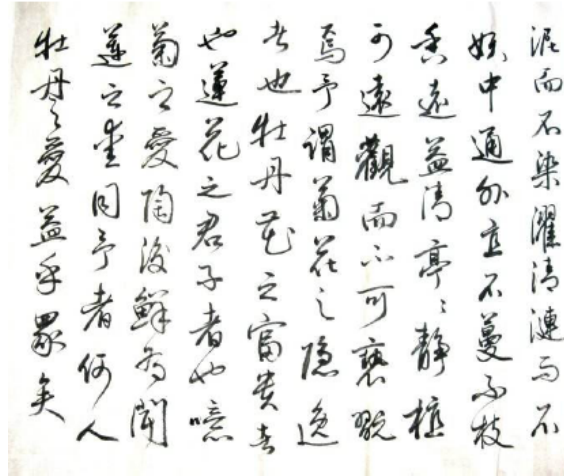 泥而不染濯清漣而不
妖中通外直不蔓不枝
香遠益清亭々靜植
可遠觀而不可褻翫
焉予謂菊花之隱逸
者也牡丹花之富貴者
也蓮花之君子者也噫
菊之愛陶後鮮有聞
蓮之愛同予者何人
牡丹之愛益乎眾矣